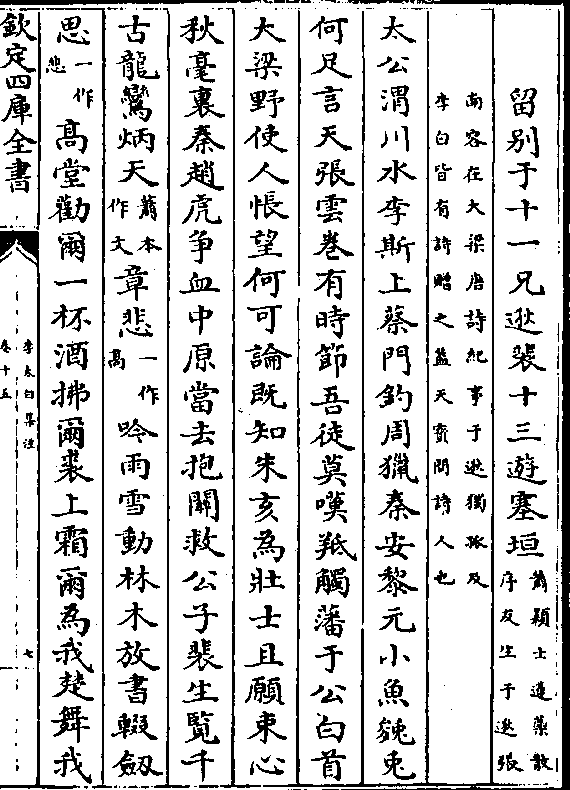 留别于十一兄逖裴十三遊塞垣
蕭穎士蓮蘂散
序友生于逖張
南容在大梁唐詩紀事于逖獨孤及
李白皆有詩贈之蓋天寳間詩人也
太公渭川水李斯上蔡門釣周獵秦安黎元小魚㕙兔
何足言天張雲卷有時節吾徒莫嘆羝觸藩于公白首
大梁野使人悵望何可論既知朱亥為壯士且願束心
秋毫裏秦趙虎争血中原當去抱關救公子裴生覽千
古龍鸞炳天蕭本作文章悲一作高吟雨雪動林木放書輟劒
思一作悲高堂勸爾一杯酒拂爾裘上霜爾為我楚舞我
欽定四庫全書
李太白集注
卷十五
七